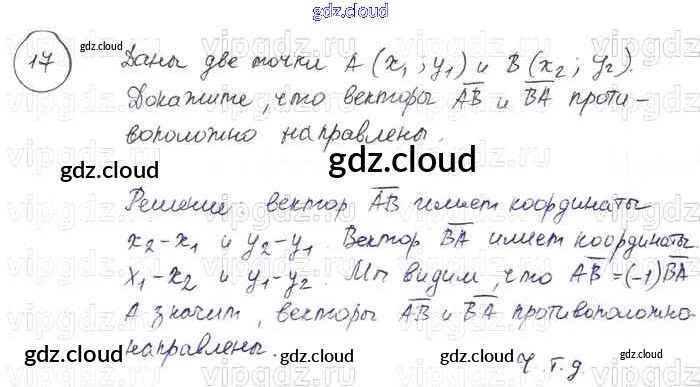 gdz.cloud
17 gdz.cloud
Даны две точки A (x₁; y₁) и B (x₂; y₂).
Докажите, что векторы A̅B̅ и B̅A̅ проти-
воположно направлены.
gdz.cloud
gdz.cloud
gdz.cloud
Решение: вектор A̅B̅ имеет координаты
x₂-x₁ и y₂-y₁. Вектор B̅A̅ имеет координаты
x₁-x₂ и y₁-y₂. Мы видим, что A̅B̅=(-1)B̅A̅
А значит, векторы A̅B̅ и B̅A̅ противоположно
направлены.
gdz.cloud
gdz.cloud
ч.т.д.
gdz.cloud